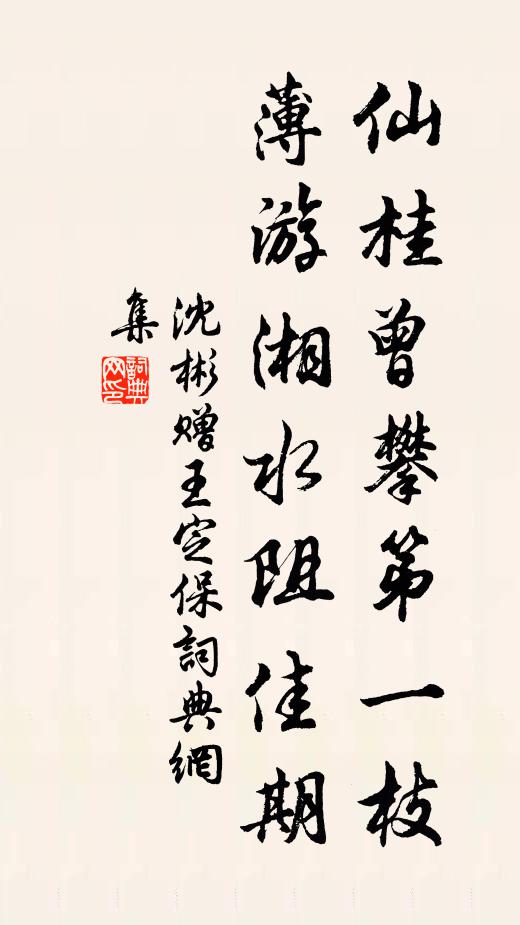 仙桂曾攀第一枝
薄游湘水阻佳期
沈彬赠王定保詞典網
集
詞典
网印